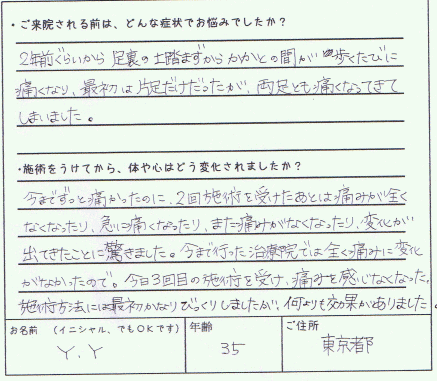 ・ご来院される前は、どんな症状でお悩みでしたか？
2年前ぐらいから 足裏の土踏まずからかかとの間が 歩くたびに
痛くなり、最初は片足だけだったが、両足とも痛くなってきて
しまいました。
・施術をうけてから、体や心はどう変化されましたか？
今までずっと痛かったのに、2回施術を受けたあとは痛みが全く
なくなったり、急に痛くなったり、また痛みがなくなったり、変化が
出てきたことに驚きました。今まで行った治療院では全く痛みに変化
がなかったので。今日3回目の施術を受け、痛みを感じなくなった。
施術方法には最初かなりびっくりしましたが、何よりも効果がありました。
お名前 （イニシャル、でもOKです） 年齢 ご住所
Y.Y 35 東京都